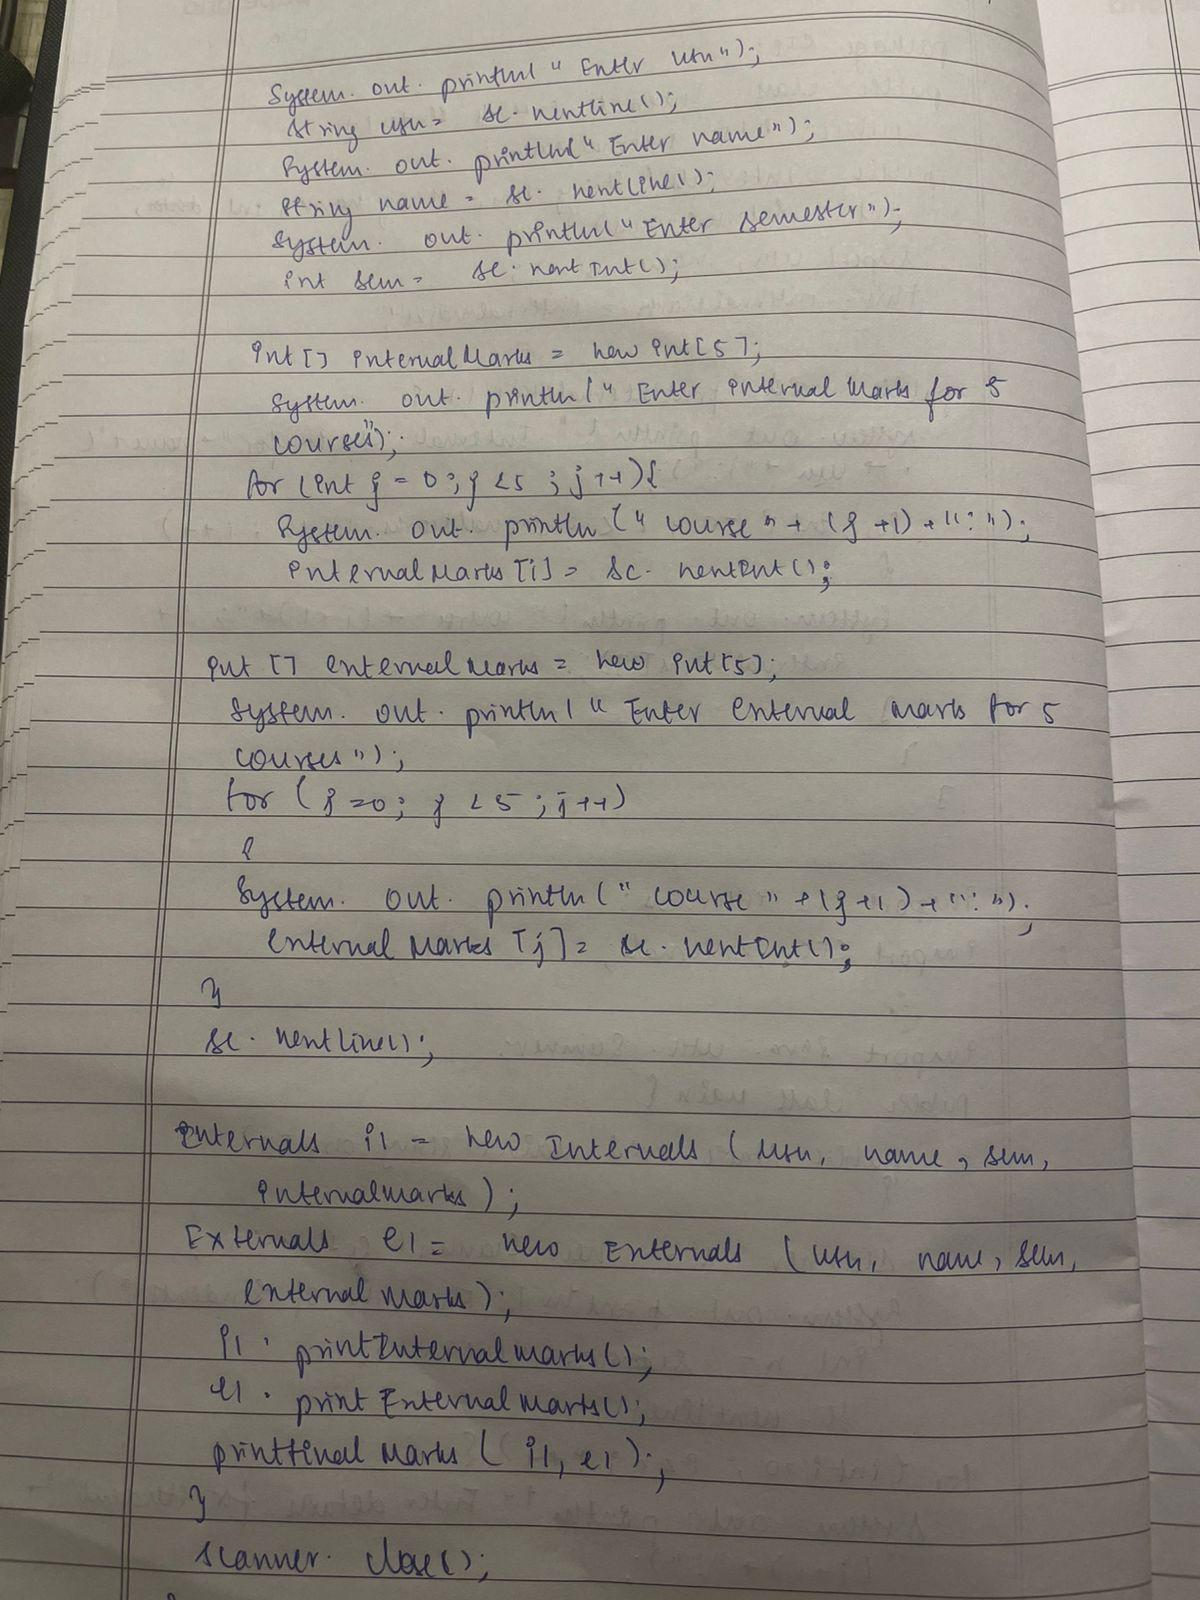 System. out. println(" Enter usn");
String usn = sc. nextline();
System. out. println(" Enter name");
String name = sc. nextLine();
System. out. println("Enter semester");
int sem = sc. nextInt();
int[] internalMarks = new int[5];
System. out. println(" Enter internal Marks for 5
courses");
for (int j = 0; j <5 ; j++){
System. out. println (" course " + (j +1) + " : ");
internalMarks [i] = sc. nextInt();
int [] externalMarks = new int[5];
System. out. println( " Enter external marks for 5
courses ");
for ( j =0; j < 5 ; j++)
{
System. out. println (" course " + (j +1) + " : ");
external Marks [j] = sc. nextInt();
}
sc. nextline();
Internals i1 = new Internals ( usn, name, sem,
internalmarks );
Externals e1 = new Externals ( usn, name, sem,
external marks );
i1 . printInternalmarks();
e1 . print ExternalMarks();
printfinal Marks ( i1, e1 );
}
scanner. close();